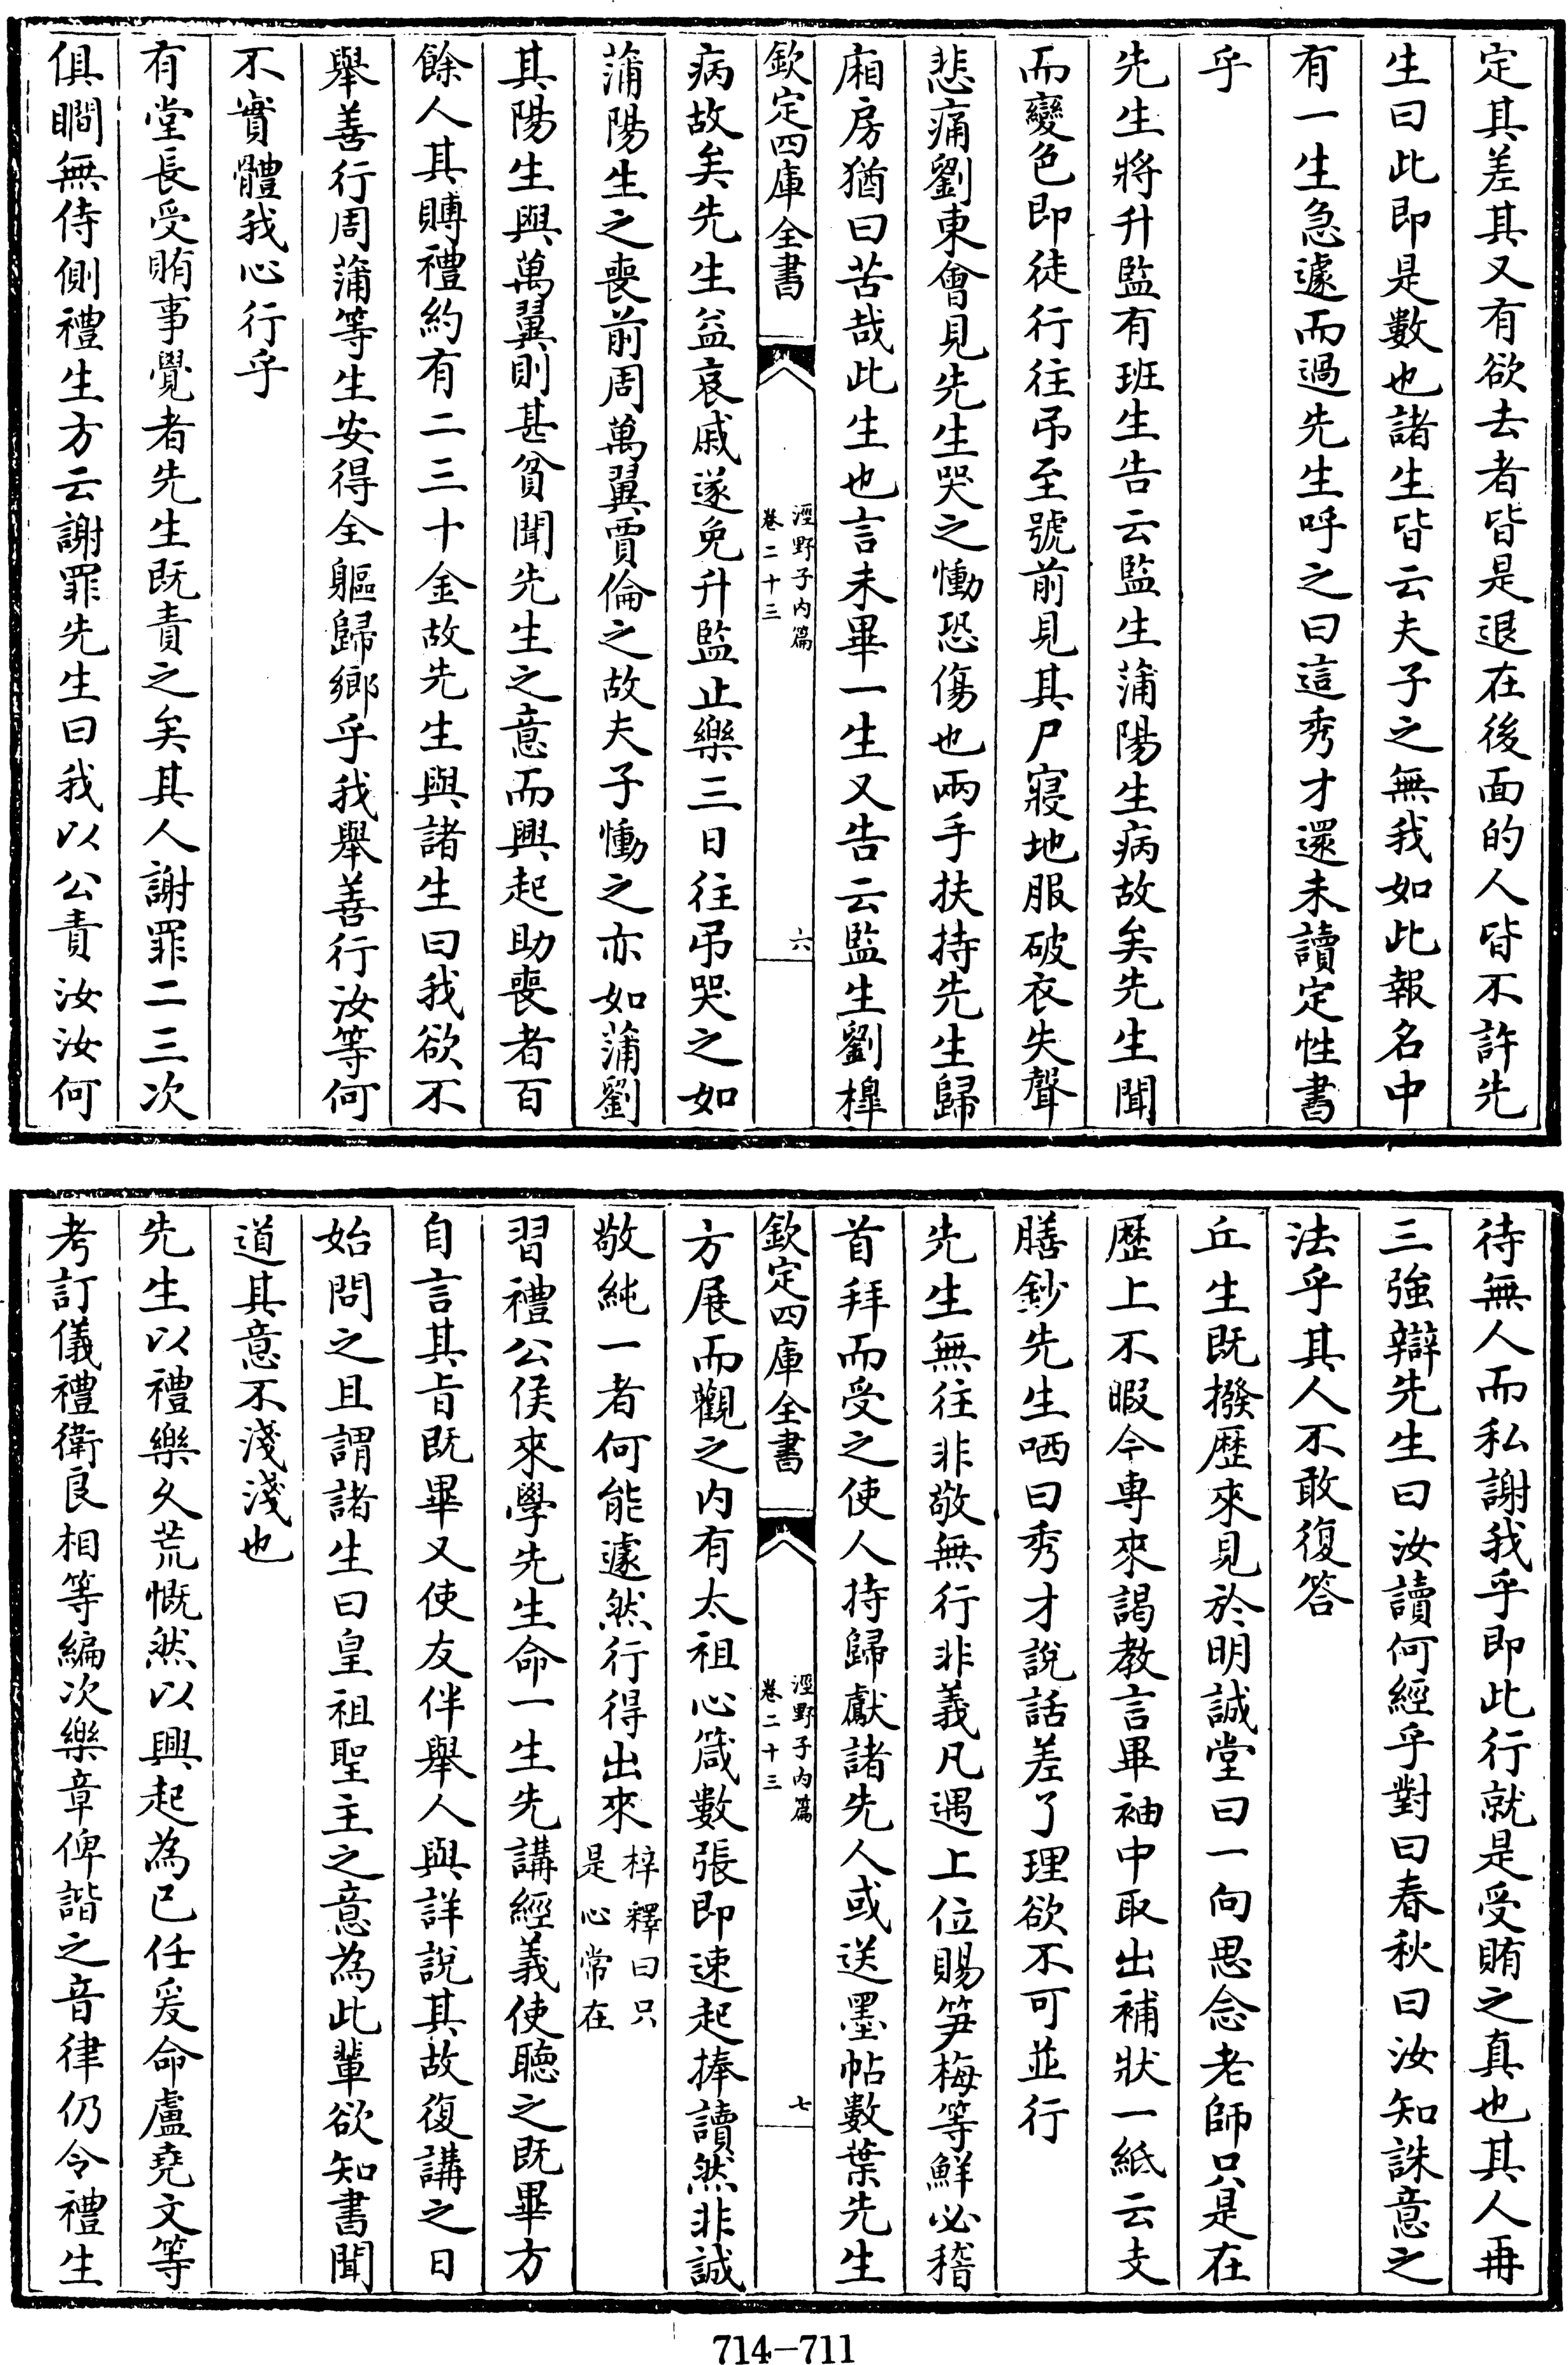 定其差其又有欲去者皆是退在後面的人皆不許先
生曰此即是數也諸生皆云夫子之無我如此報名中
有一生急遽而過先生呼之曰這秀才還未讀定性書
乎
先生將升監有班生告云監生蒲陽生病故矣先生聞
而變色即徒行往弔至號前見其尸寢地服破衣失聲
悲痛劉東會見先生哭之慟恐傷也兩手扶持先生歸
廂房猶曰苦哉此生也言未畢一生又告云監生劉橰
欽定四庫全書
涇野子內篇
卷二十三
六
病故矣先生益哀戚遂免升監止樂三日往弔哭之如
蒲陽生之喪前周萬翼賈倫之故夫子慟之亦如蒲劉
其陽生與萬翼則甚貧聞先生之意而興起助喪者百
餘人其賻禮約有二三十金故先生與諸生曰我欲不
舉善行周蒲等生安得全軀歸鄉乎我舉善行汝等何
不實體我心行乎
有堂長受賄事覺者先生既責之矣其人謝罪二三次
俱瞷無侍側禮生方云謝罪先生曰我以公責汝汝何
待無人而私謝我乎即此行就是受賄之真也其人再
三強辯先生曰汝讀何經乎對曰春秋曰汝知誅意之
法乎其人不敢復答
丘生既撥歷來見於明誠堂曰一向思念老師只是在
歷上不暇今專來謁教言畢袖中取出補狀一紙云支
膳鈔先生哂曰秀才說話差了理欲不可並行
先生無往非敬無行非義凡遇上位賜笋梅等鮮必稽
首拜而受之使人持歸獻諸先人或送墨帖數葉先生
欽定四庫全書
涇野子內篇
卷二十三
七
方展而觀之內有太祖心箴數張即速起捧讀然非誠
敬純一者何能遽然行得出來梓釋曰只
是心常在
習禮公侯來學先生命一生先講經義使聽之既畢方
自言其旨既畢又使友伴舉人與詳說其故復講之日
始問之且謂諸生曰皇祖聖主之意為此輩欲知書聞
道其意不淺淺也
先生以禮樂久荒慨然以興起為已任爰命盧堯文等
考訂儀禮衛良相等編次樂章俾諧之音律仍令禮生
714-711